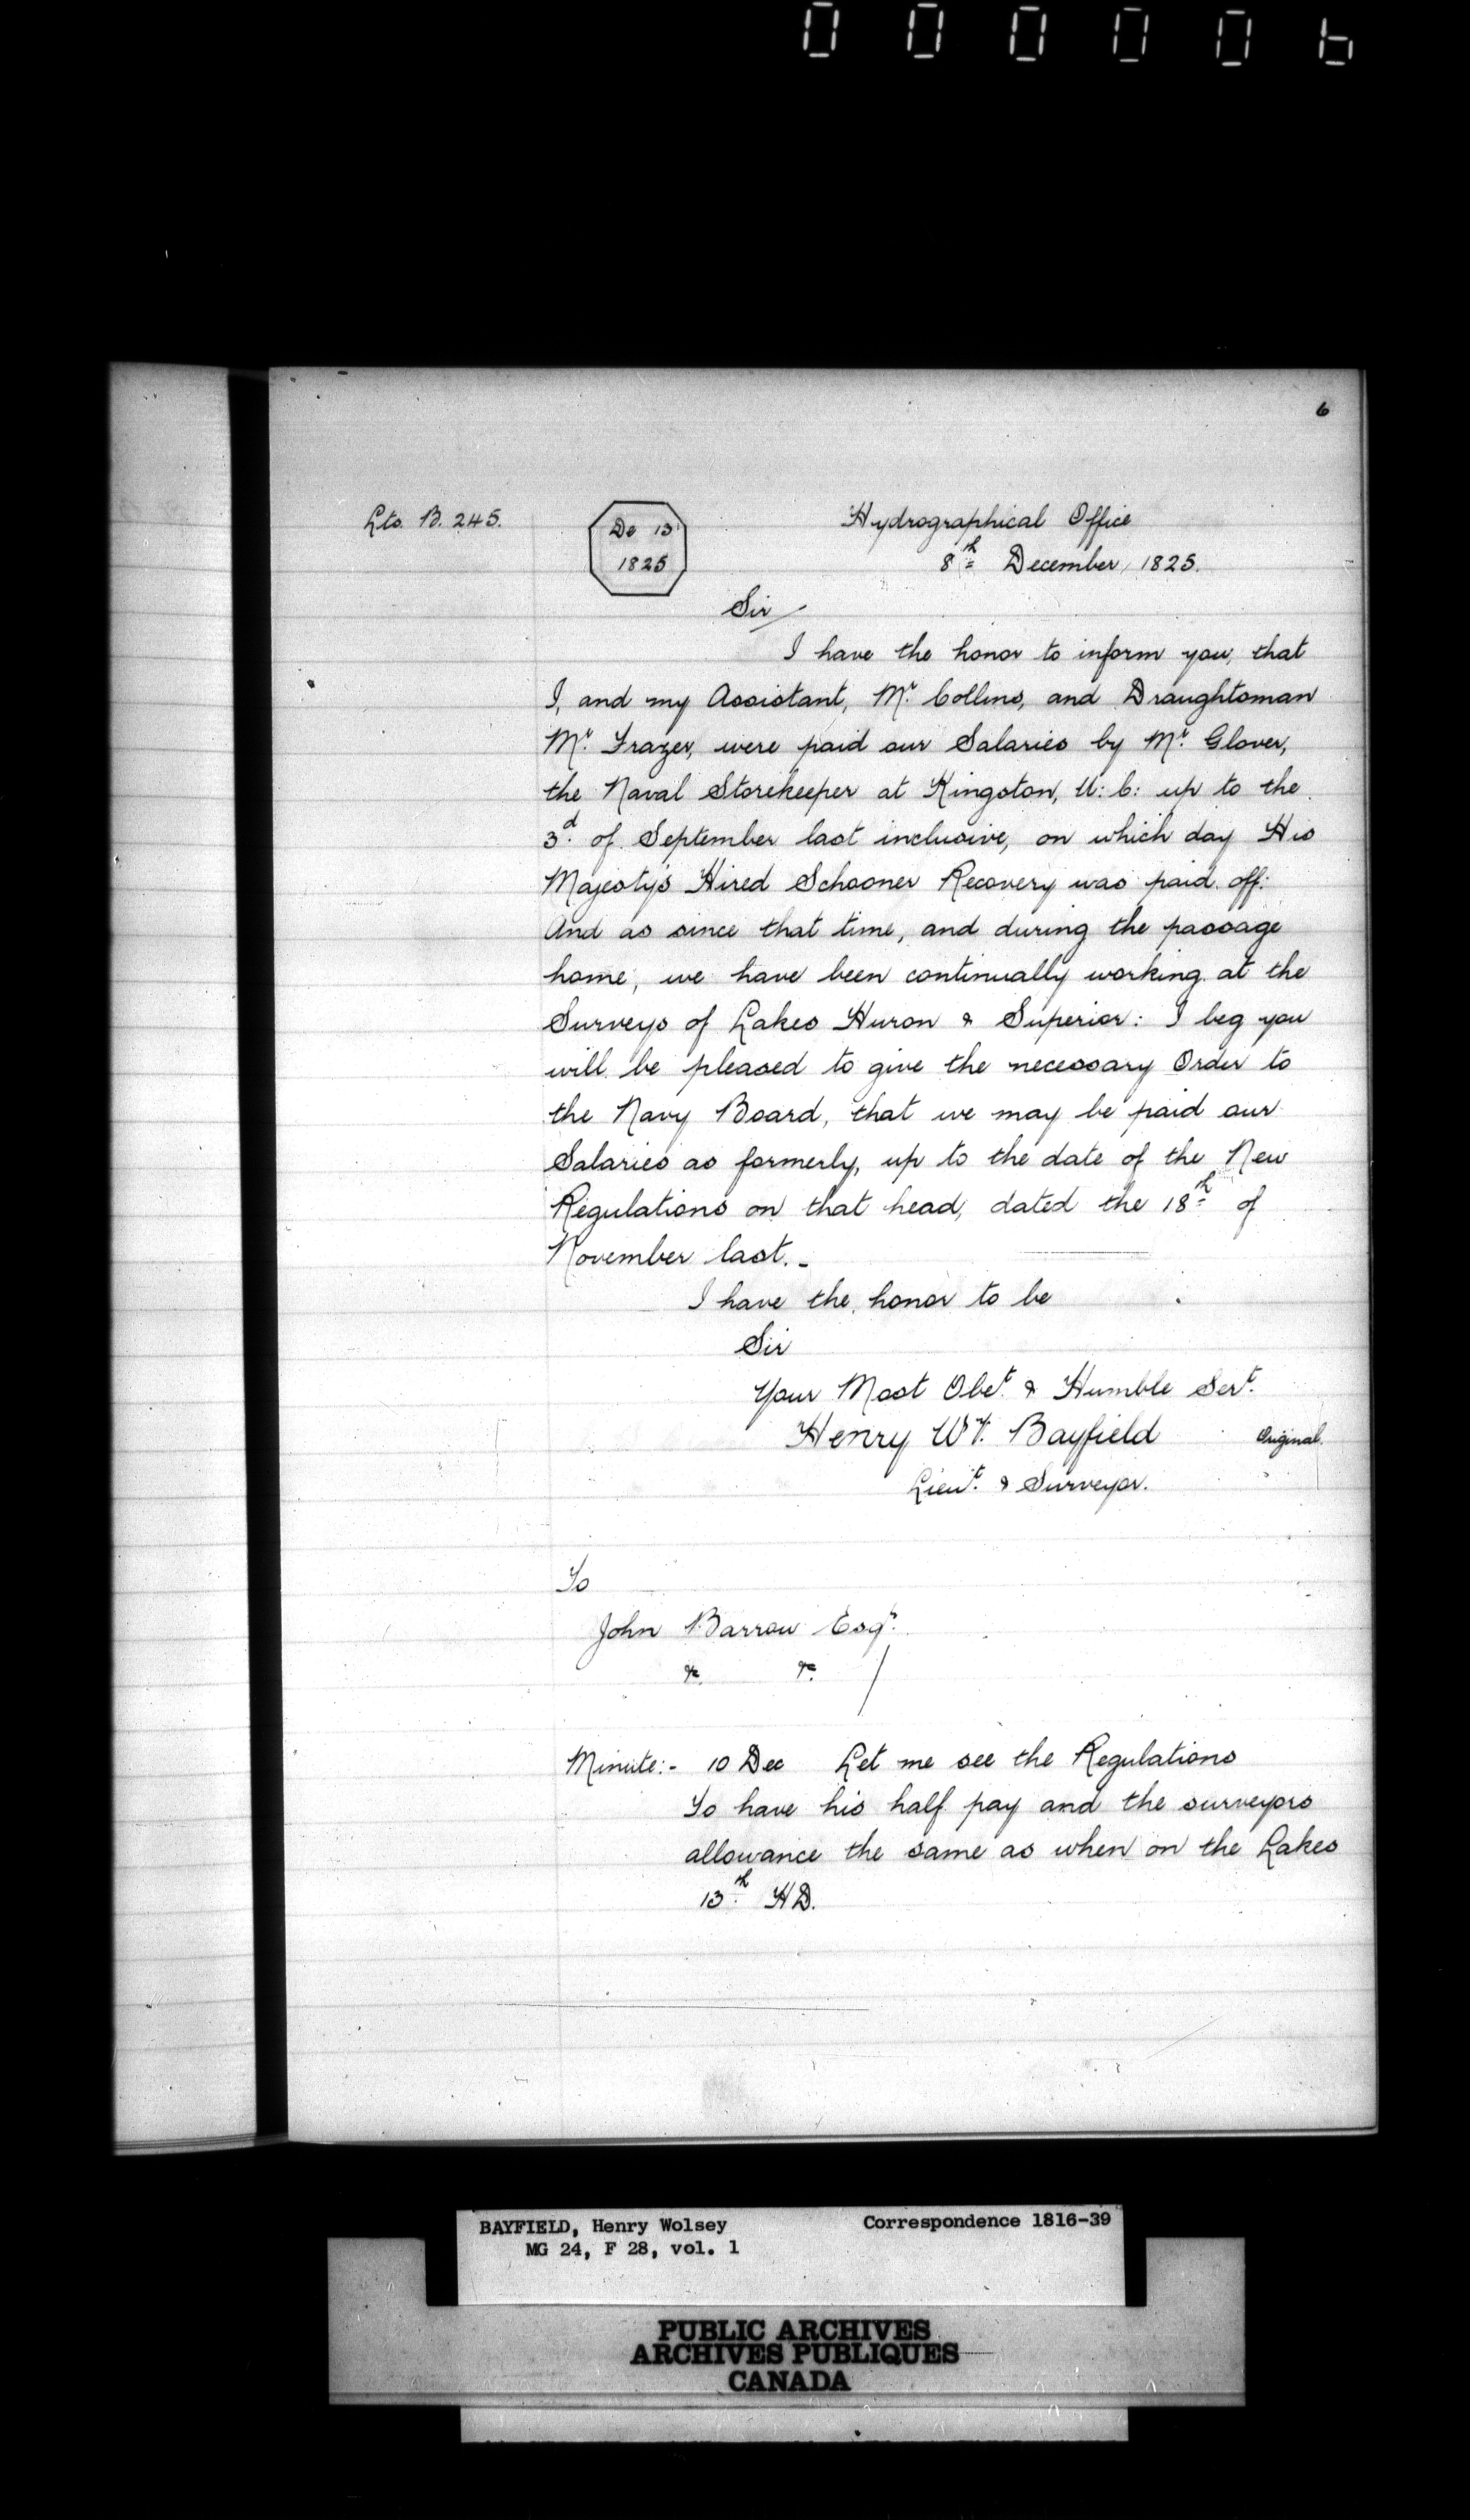 000006
6
Lts. B. 245.
De 13
1825
Hydrographical Office
8th December, 1825.
Sir
I have the honor to inform you, that
I, and my Assistant, Mr. Collins, and Draughtsman
Mr. Frazer, were paid our Salaries by Mr. Glover,
the Naval Storekeeper at Kingston, U: C: up to the
3d. of September last inclusive, on which day His
Majesty's Hired Schooner Recovery was paid off:
And as since that time, and during the passage
home, we have been continually working at the
Surveys of Lakes Huron & Superior: I beg you
will be pleased to give the necessary Order to
the Navy Board, that we may be paid our
Salaries as formerly, up to the date of the New
Regulations on that head, dated the 18th of
November last. -
I have the honor to be
Sir
Your Most Obet. & Humble Sert.
Henry Wy. Bayfield
Original.
Lieut. & Surveyor.
To
John Barrow Esqr.
&c. &c.
Minute:- 10 Dec Let me see the Regulations
To have his half pay and the surveyors
allowance the same as when on the Lakes
13th. HD.
BAYFIELD, Henry Wolsey Correspondence 1816-39
MG 24, F 28, vol. 1
PUBLIC ARCHIVES
ARCHIVES PUBLIQUES
CANADA